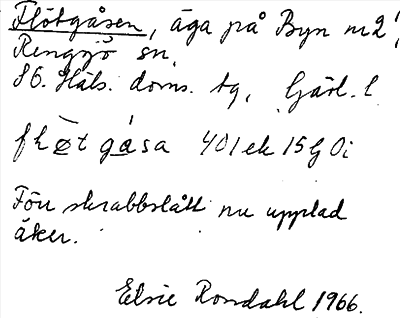 Flötgåsen, äga på Byn m2
Rengsjö sn,
S6. Häls. doms. tg, Gävl. l
fl̥øt gåsa 401 ek 15 G Oi
Förr skrabbslått nu upplad
åker.
Elsie Rondahl 1966.